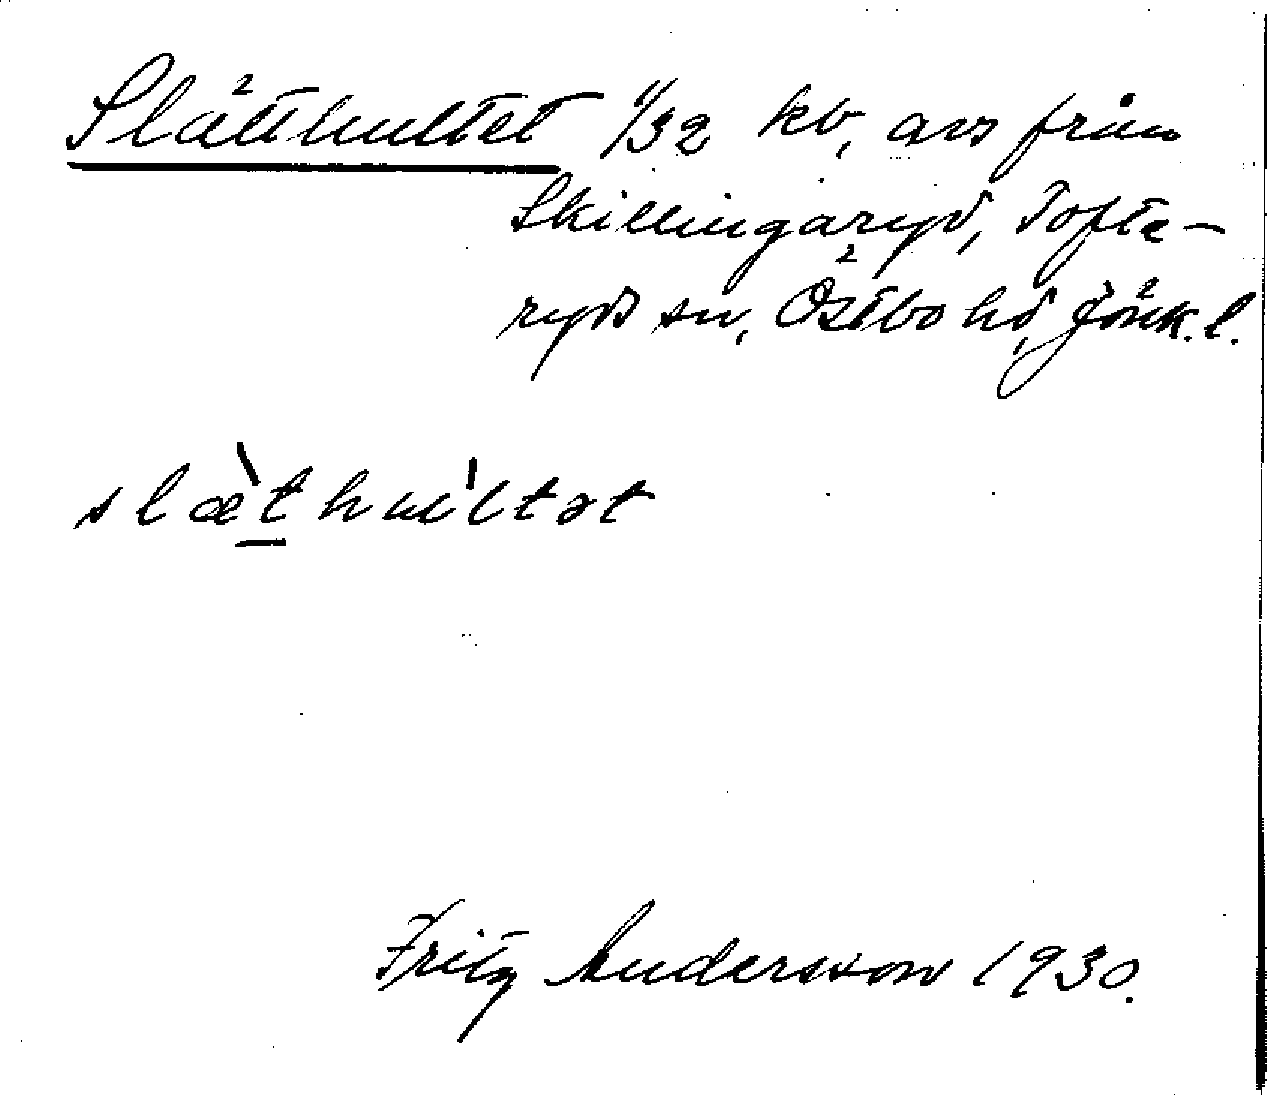 Slätthultet 1/32 kb, avs från
Skillingaryd, Tofte-
ryds sn, Östbo hd, Jönk. l.
slæ̀thu̍ltət
Fritz Andersson 1930.